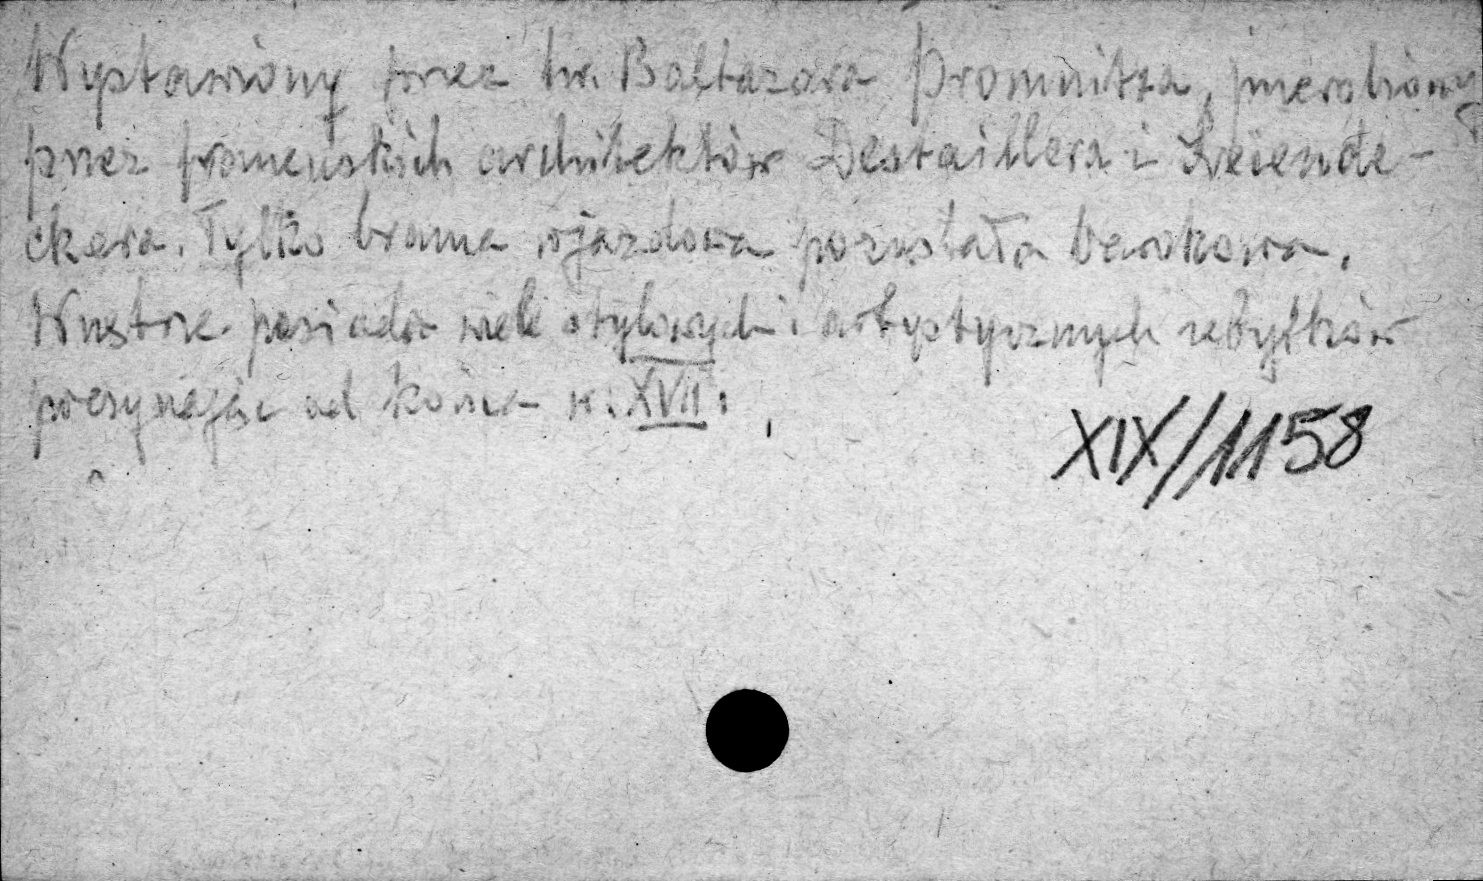 Wystawiony przez hr. Baltazara Promnitza, przerobiony
przez francuskich architektów Destaillera i Leiende-
ckera. Tylko brama wjazdowa pozostała barokowa.
Wnętrze posiada wiele stylowych i artystycznych zabytków
począwszy od końca w. XVII.
XIX/1158